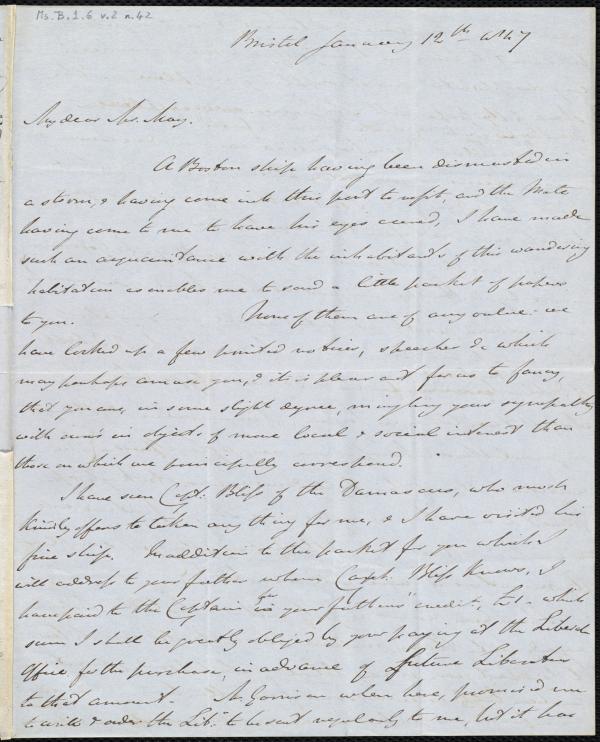 Ms. B. 1. 6 v. 2 n. 42
Bristol January 12th 1847
My dear Mr. May.
A Boston ship having been dismasted in
a storm, & having come into this port to refit, and the Mate
having come to me to have his eyes cured, I have made
such an acquaintance with the inhabitants of this wandering
habitation as enables me to send a little packet of papers
to you. None of them are of any value: we
have looked up a few printed notices, speeches &c which
may perhaps amuse you, & it is pleasant for us to fancy,
that you are, in some slight degree, mingling your sympathy
with ours in objects of more local & social interest than
those on which we principally correspond.
I have seen Capt: Bliss of the Damascus, who most
kindly offers to take any thing for me, & I have visited his
fine ship. In addition to the packet for you which I
will address to your father whom Capt. Bliss knows, I
have paid to the Captain for your father's credit, £1 - which
sum I shall be greatly obliged by your paying at the Liberator
Office for the purchase, in advance of future Liberators
to that amount. Mr. Garrison when here, promised me
to write & order the Lib:r to be sent regularly to me, but it has